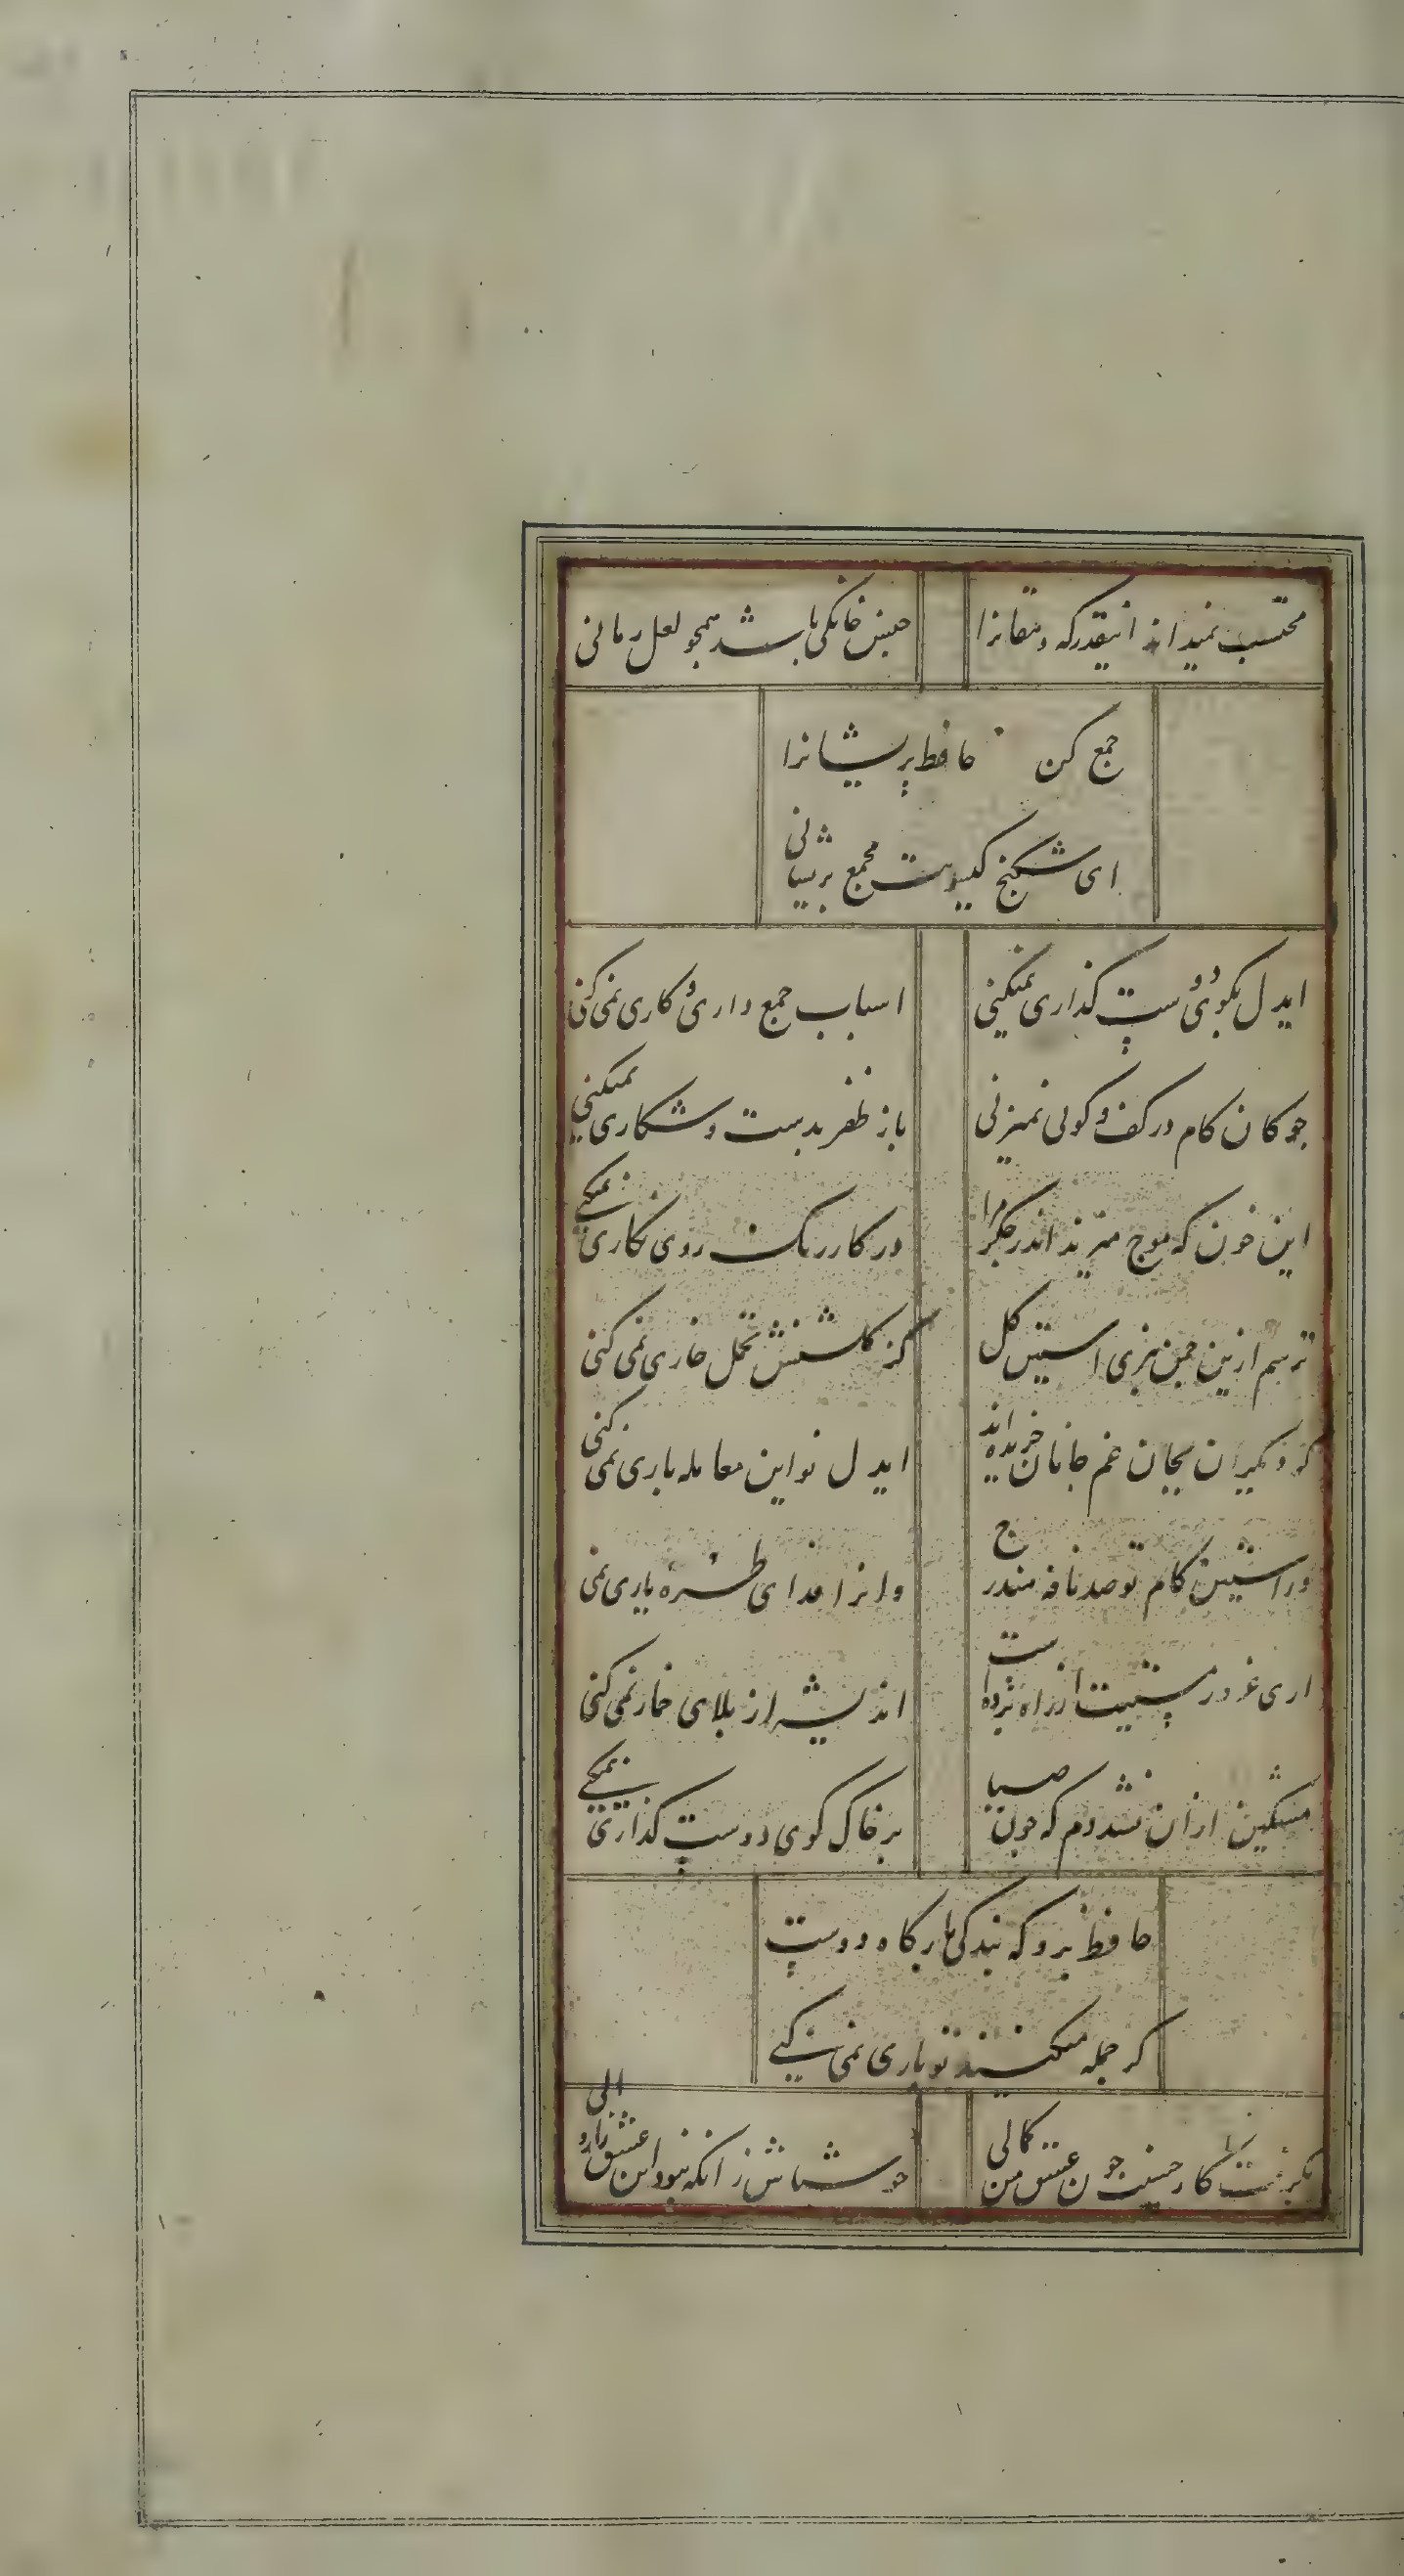 محتسب نمیداند اینقدر که صوفانرا جنس خانگی باشد همچو لعل رمانی
جمع کن حافظ پریشانرا
ای شکنج گیسویت مجمع پریشانی
ایدل بکوی دوست گذاری نمیکنی اسباب جمع داری و کاری نمی کنی
چوکان کام در کف و گوئی نمیزنی باز ظفر بدست و شکاری نمیکنی
این خون که موج میزند اندر جگر مرا در کار رنگ روی نگاری نمیکنی
ترسم ازین چمن نبری استین گل کز گلشنش تحمل خاری نمی کنی
دیگران بجان غم جانان خریده اند ایدل تو این معامله باری نمی کنی
در استین کام تو صد نافه مندرج وانرا فدای طره یاری نمی
اندیشه از بلای خمار نمی کنی
مشکین ازان نشد دم که چون صبا بر خاک کوی دوست گذاری نمیکنی
حافظ برو که بندگی بارگاه دوست
گر جمله میکنند تو باری نمی کنی
بگرفت کار حسنت چون عشق من کمالی خوش باش زانکه نبود این عشق را زوالی